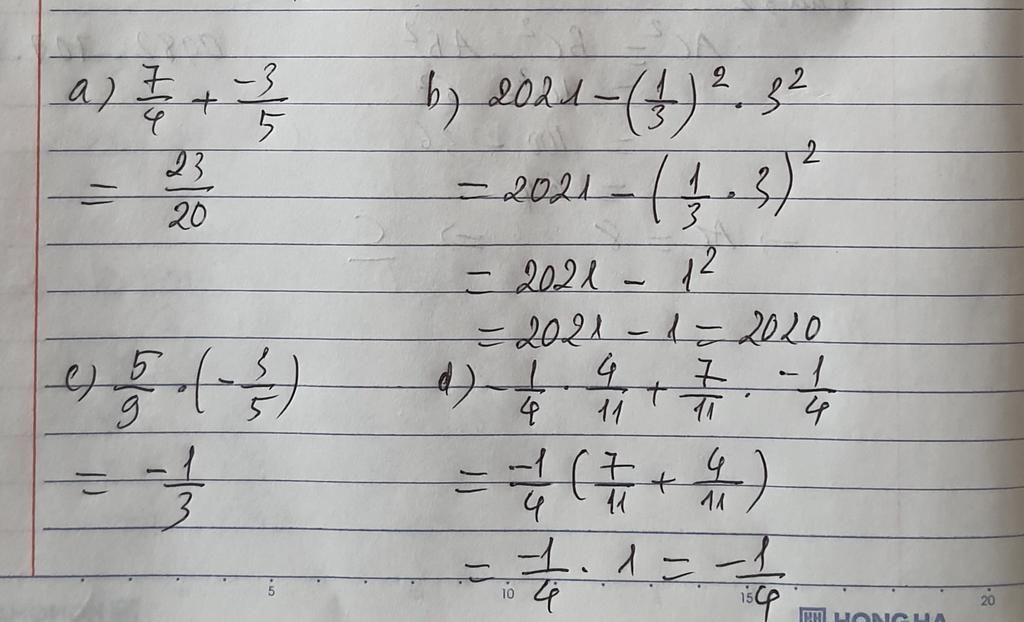 a) 7/4 + -3/5
= 23/20
b) 2021 - (1/3)² . 3²
= 2021 - (1/3 . 3)²
= 2021 - 1²
= 2021 - 1 = 2020
c) 5/9 . (-3/5)
= -1/3
d) -1/4 . 4/11 + 7/11 . -1/4
= -1/4 (7/11 + 4/11)
= -1/4 . 1 = -1/4
5 10 15 20
HH HONG HA